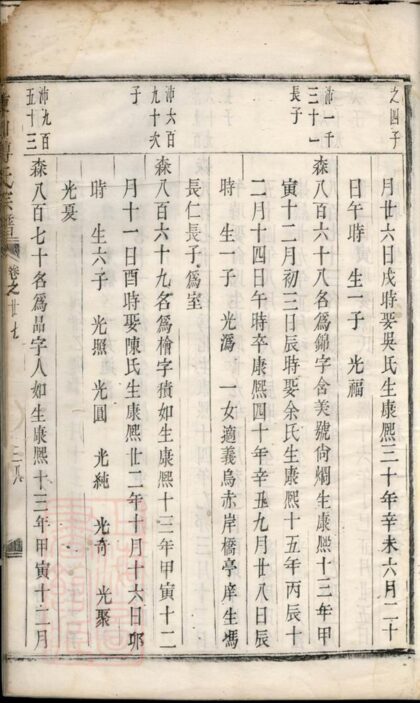 之四子
月廿六日戌時娶吳氏生康熙三十年辛未六月二十
日午時 生一子 光福
沛一千三十一長子
森八百六十八名爲錦字含美號尚烱生康熙十三年甲
寅十二月初三日辰時娶余氏生康熙十五年丙辰十
二月十四日午時卒康熙四十年辛丑九月廿八日辰
時 生一子 光溈 一女適義烏赤岸橋亭庠生馮
長仁長子爲室
沛六百九十六子
森八百六十九名爲檜字積如生康熙十三年甲寅十二
月十一日酉時娶陳氏生康熙廿二年十月十六日卯
時 生六子 光照 光圓 光純 光奇 光聚
光旻
沛九百五十三
森八百七十名爲品字人如生康熙十三年甲寅十二月
氏宗譜 卷之廿七